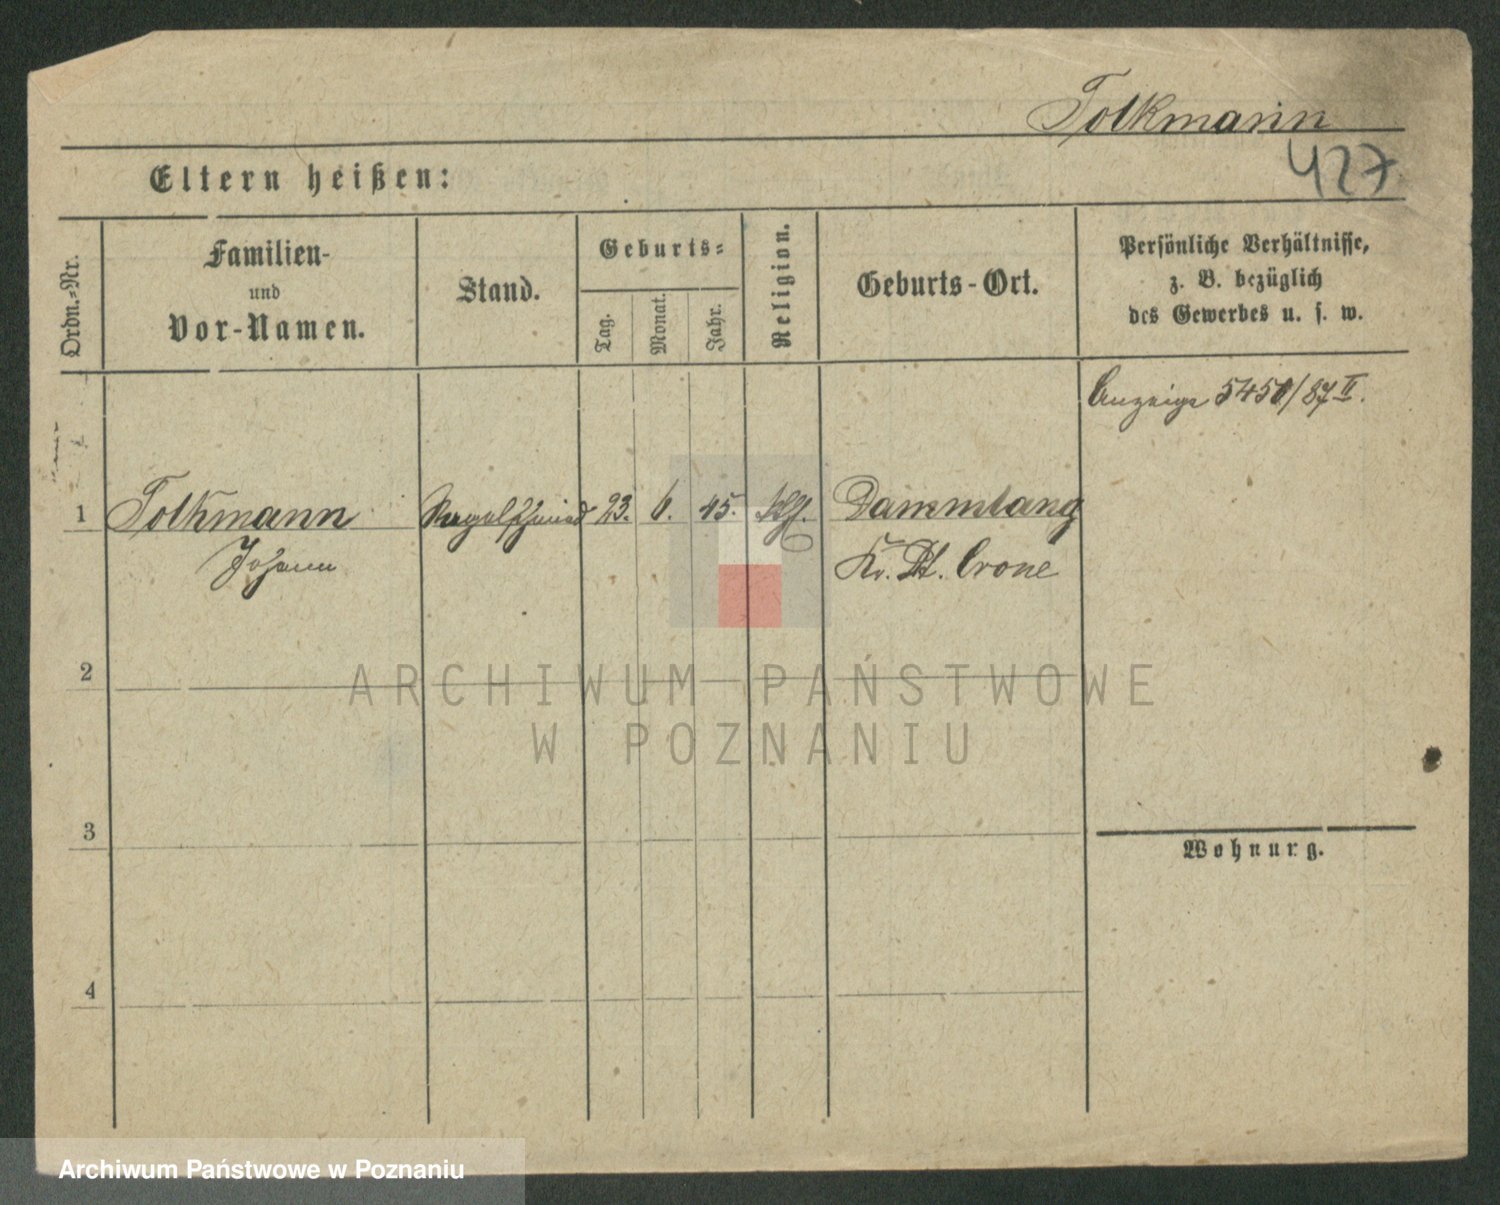 Tolkmann
427
Eltern heißen:
Ordn.-Nr.
Familien-
und
Vor-Namen.
Stand.
Geburts-
Tag.
Monat.
Jahr.
Religion.
Geburts-Ort.
Persönliche Verhältnisse,
z. B. bezüglich
des Gewerbes u. s. w.
Anzeige 5450/87 II.
1 Tolkmann Nagelschmied 23. 6. 45. Dammlang
Johann Kr. Dt. Crone
2
ARCHIWUM PAŃSTWOWE
W POZNANIU
3
Wohnung.
4
Archiwum Państwowe w Poznaniu